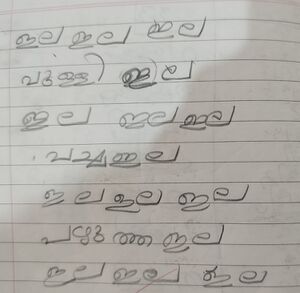 ഇല ഇല ഇല
പുള്ളി ഇല
ഇല ഇല ഇല
പച്ച ഇല
ഇല ഇല ഇല
പഴുത്ത ഇല
ഇല ഇല ഇല